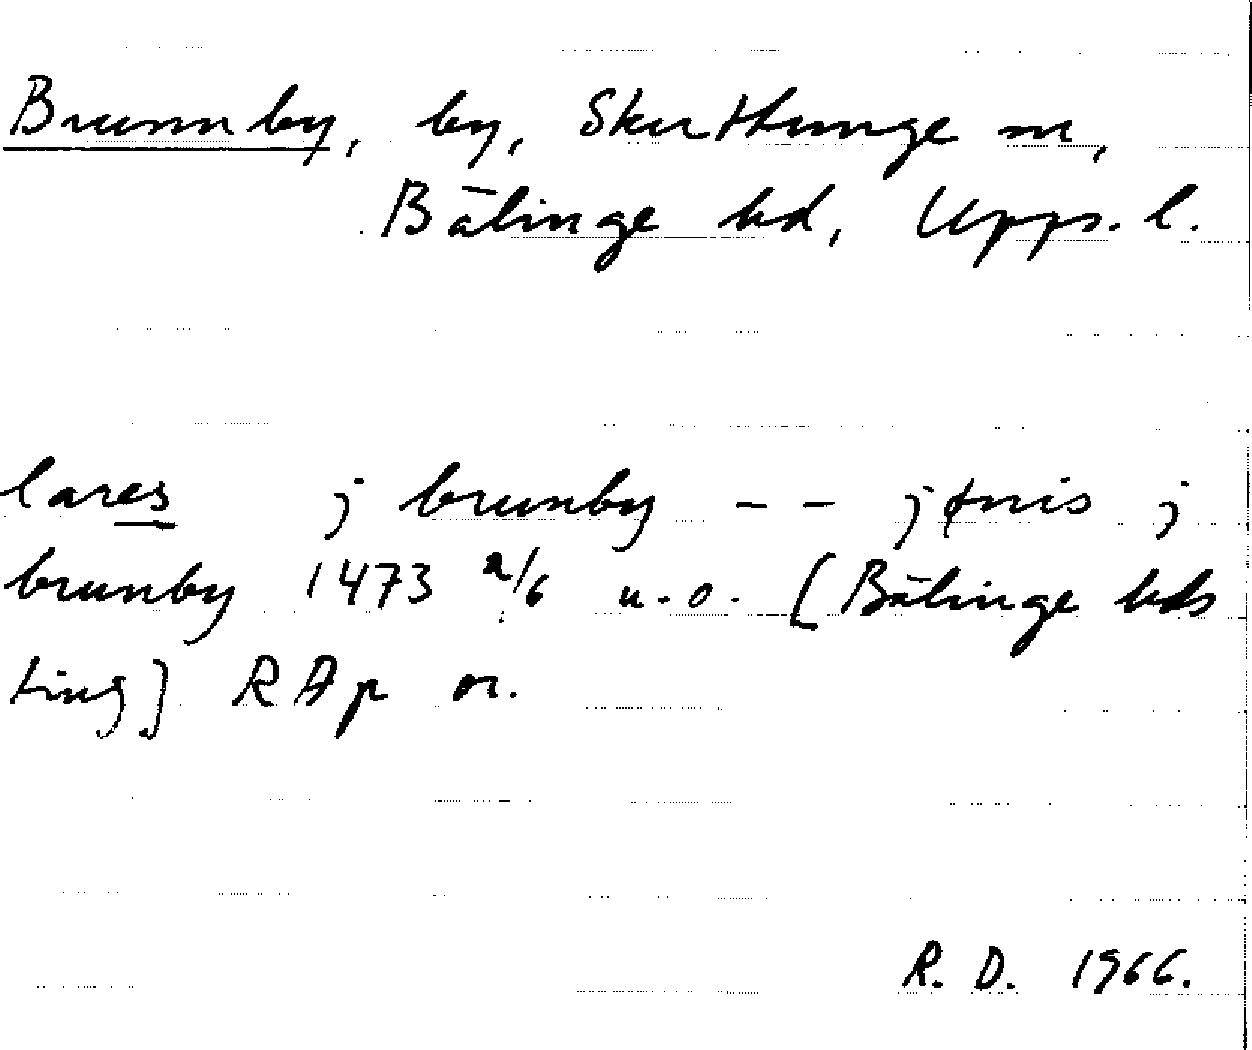 Brunnby, by, Skuttunge sn,
Bälinge hd, Upps. l.
lares j brunby - - j
brunby 1473 2/6 u.o. [Bälinge hds
ting] RAp or.
R. D. 1966.